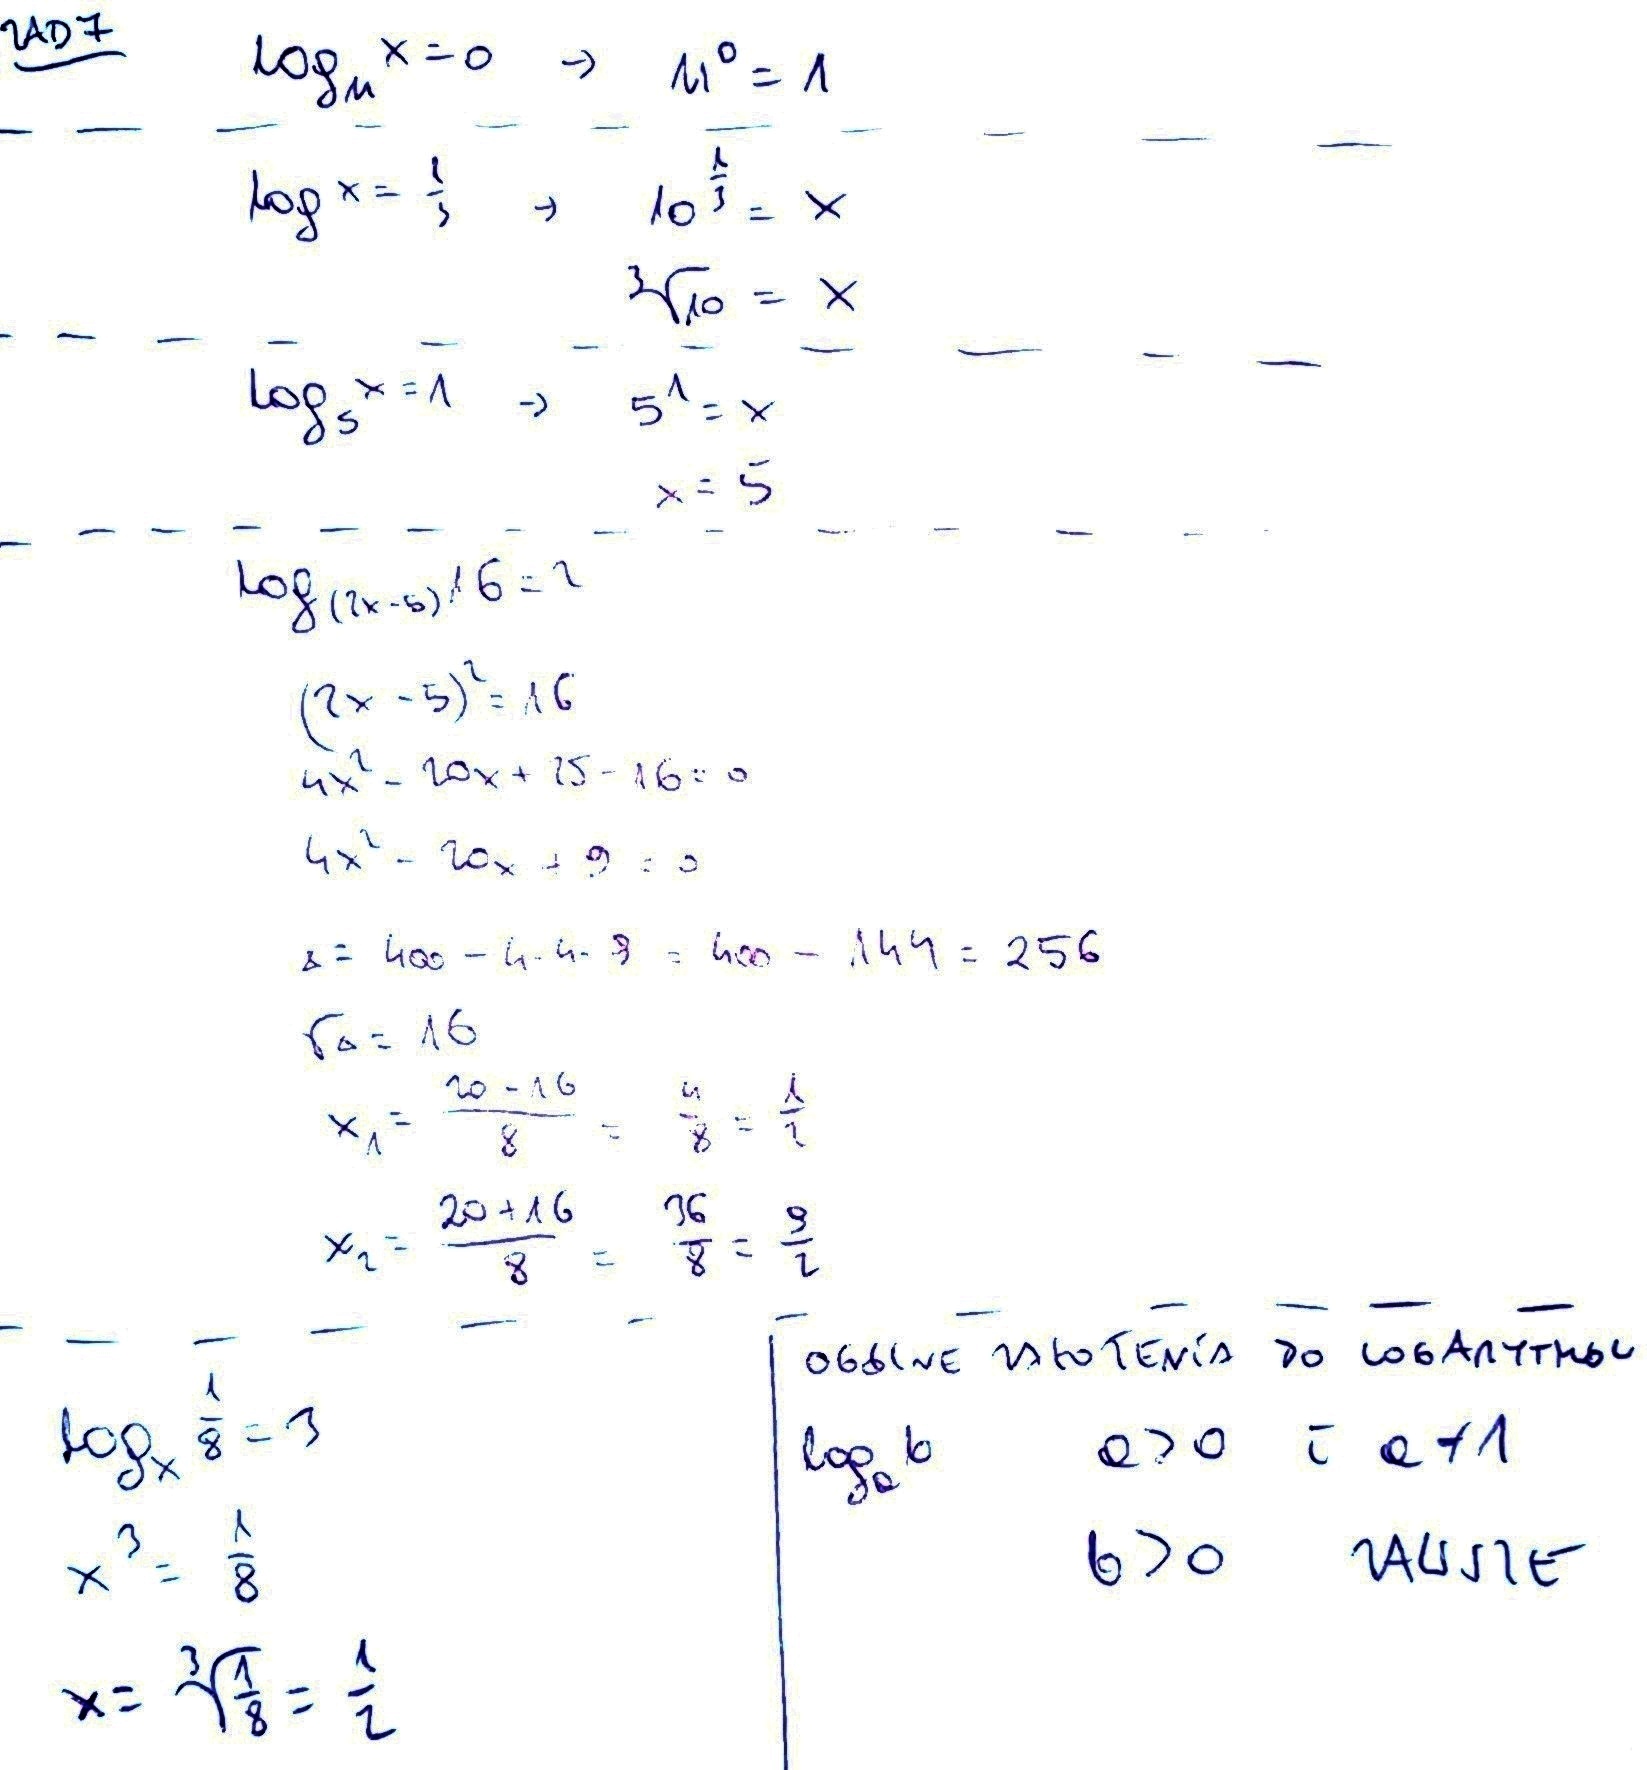 ZAD 7
log₁₁ x = 0 → 11⁰ = 1
log x = 1/3 → 10^(1/3) = x
∛10 = x
log₅ x = 1 → 5¹ = x
x = 5
log₍₂ₓ₋₅₎ 16 = 2
(2x - 5)² = 16
4x² - 20x + 25 - 16 = 0
4x² - 20x + 9 = 0
Δ = 400 - 4·4·9 = 400 - 144 = 256
√Δ = 16
x₁ = (20 - 16)/8 = 4/8 = 1/2
x₂ = (20 + 16)/8 = 36/8 = 9/2
logₓ 1/8 = 3
x³ = 1/8
x = ∛(1/8) = 1/2
OGÓLNE ZAŁOŻENIA DO LOGARYTMÓW
logₐ b a > 0 i a ≠ 1
b > 0 ZAWSZE